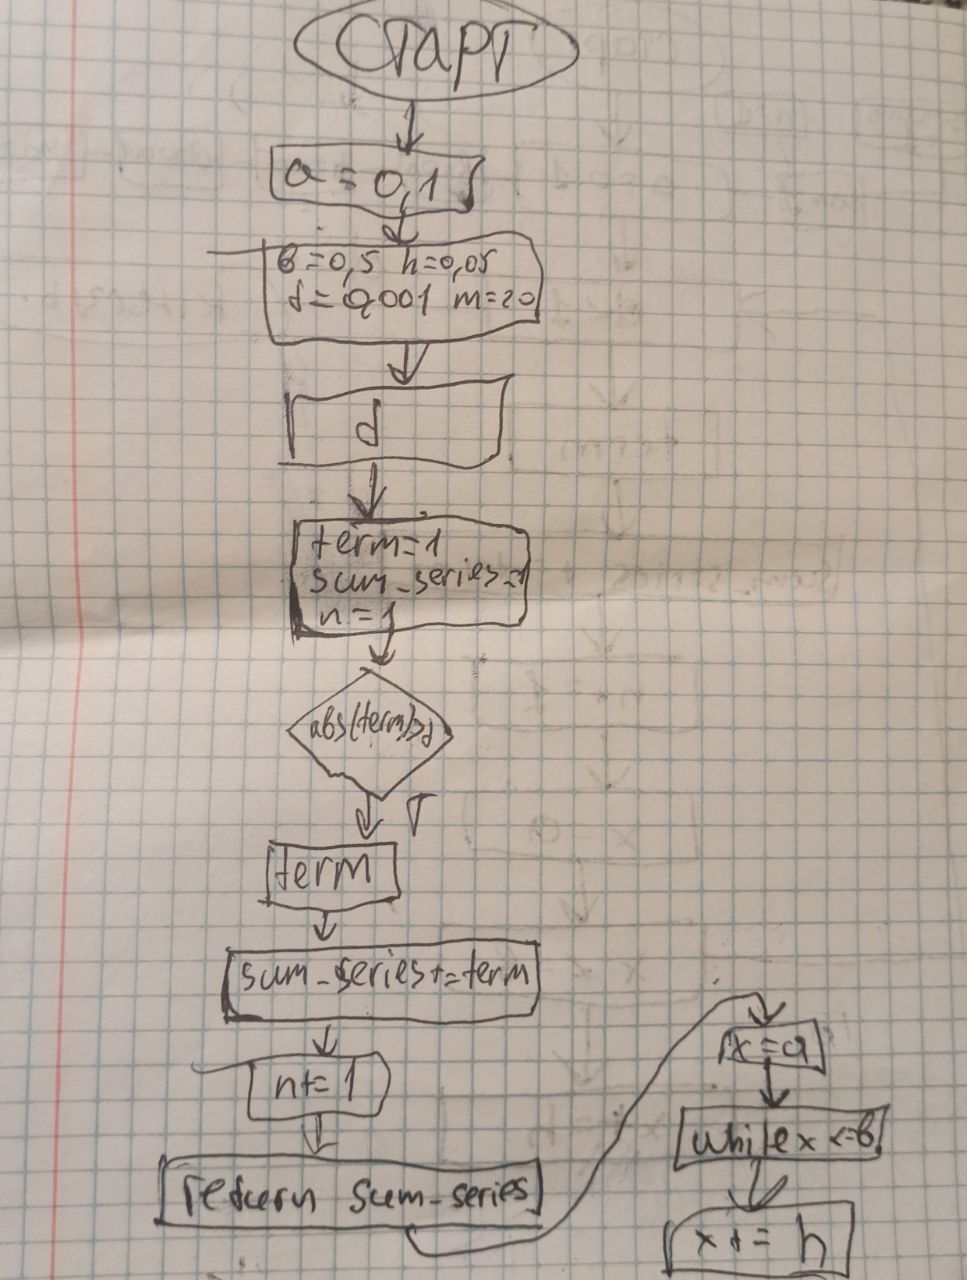 СТАРТ
a = 0,1
в=0,5 h=0,05
d=0,001 m=20
d
term=1
sum_series=1
n=1
abs(term)>d
T
term
sum_series+=term
n+=1
return sum_series
x=a
while x <=в
x+= h